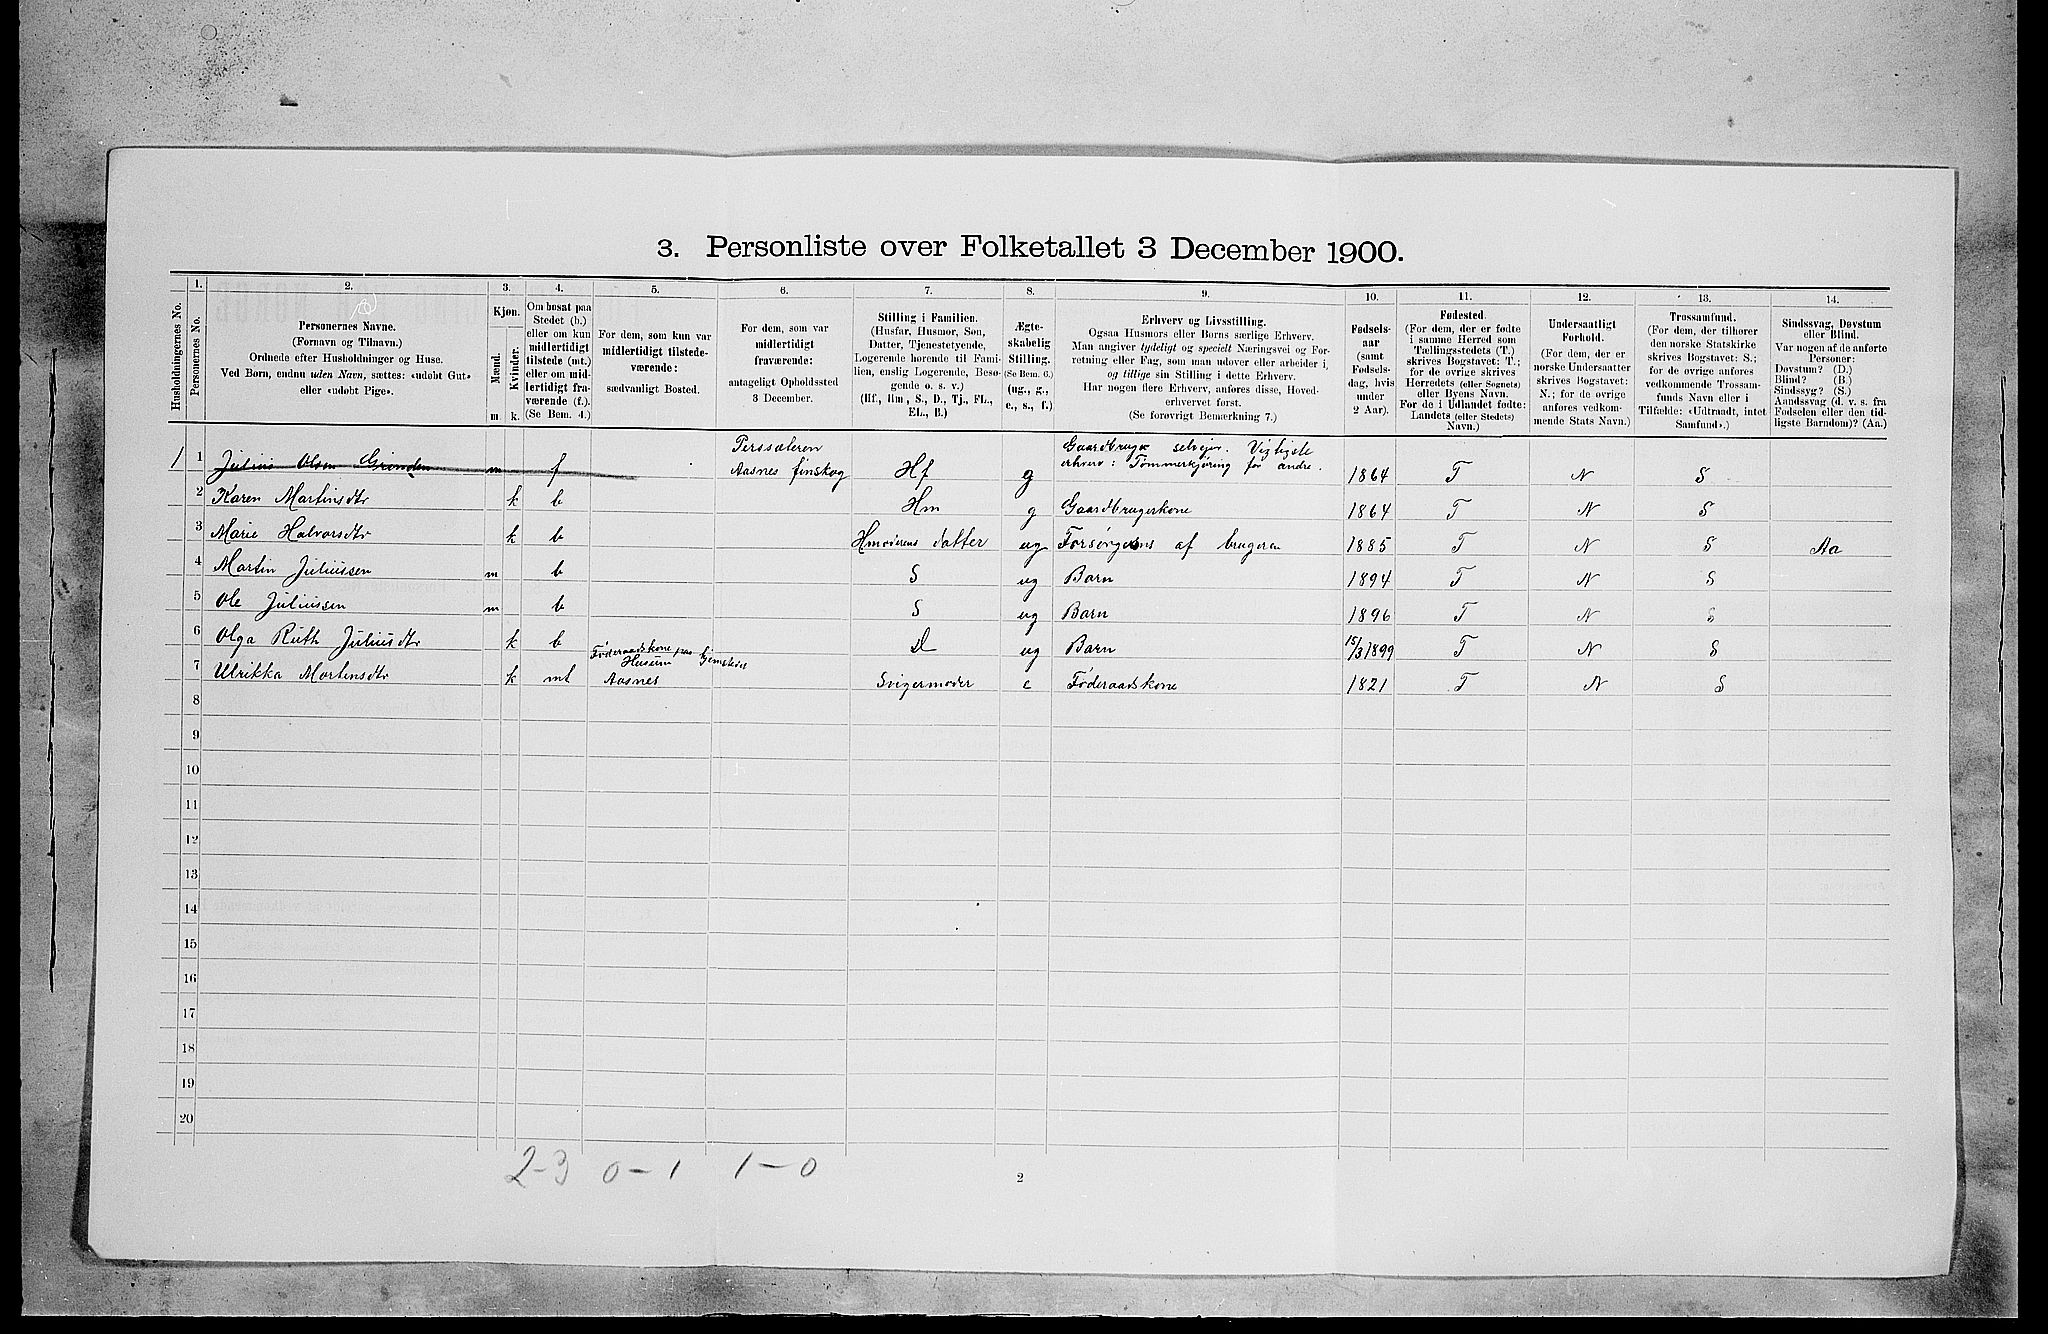 3. Personliste over Folketallet 3 December 1900.
Husholdningernes No.
1.
Personernes No.
2.
Personernes Navne.
(Fornavn og Tilnavn.)
Ordnede efter Husholdninger og Huse.
Ved Børn, endnu uden Navn, sættes: «udøbt Gut»
eller «udøbt Pige».
3.
Kjøn.
Mænd.
Kvinder.
m. k.
4.
Om bosat paa
Stedet (b.)
eller om kun
midlertidigt
tilstede (mt.)
eller om mid-
lertidigt fra-
værende (f.).
(Se Bem. 4.)
5.
For dem, som kun var
midlertidigt tilstede-
værende:
sædvanligt Bosted.
6.
For dem, som var
midlertidigt
fraværende:
antageligt Opholdssted
3 December.
7.
Stilling i Familien.
(Husfar, Husmor, Søn,
Datter, Tjenestetyende,
Logerende hørende til Fami-
lien, enslig Logerende, Besø-
gende o. s. v.)
(Hf., Hm., S., D., Tj., FL.,
EL., B.)
8.
Ægte-
skabelig
Stilling.
(Se Bem. 6.)
(ug., g.,
e., s., f.)
9.
Erhverv og Livsstilling.
Ogsaa Husmors eller Børns særlige Erhverv.
Man angiver tydeligt og specielt Næringsvei og For-
retning eller Fag, som man udøver eller arbeider i,
og tillige sin Stilling i dette Erhverv.
Har nogen flere Erhverv, anføres disse, Hoved-
erhvervet først.
(Se forøvrigt Bemærkning 7.)
10.
Fødsels-
aar
(samt
Fødsels-
dag, hvis
under
2 Aar).
11.
Fødested.
(For dem, der er fødte
i samme Herred som
Tællingsstedets (T.)
skrives Bogstavet: T.;
for de øvrige skrives
Herredets (eller Sognets)
eller Byens Navn.
For de i Udlandet fødte:
Landets (eller Stedets)
Navn.)
12.
Undersaatligt
Forhold.
(For dem, der er
norske Undersaatter
skrives Bogstavet:
N.; for de øvrige
anføres vedkom-
mende Stats Navn.)
13.
Trossamfund.
(For dem, der tilhører
den norske Statskirke
skrives Bogstavet: S.;
for de øvrige anføres
vedkommende Trossam-
funds Navn eller i
Tilfælde: «Udtraadt, intet
Samfund».)
14.
Sindssvag, Døvstum
eller Blind.
Var nogen af de anførte
Personer:
Døvstum? (D.)
Blind? (B.)
Sindssyg? (S.)
Aandssvag (d. v. s. fra
Fødselen eller den tid-
ligste Barndom)? (Aa.)
1 1 Julius Olsen Grinden m f Perssæteren Aasnes finskog Hf g Gaardbruger selveier. Vigtigste erhverv: Tømmerkjøring for andre. 1864 T N S
2 Karen Martinsdtr k b Hm g Gaardbrugerkone 1864 T N S
3 Marie Halvorsdtr k b Hmoderens datter ug Forsørges af brugeren 1885 T N S Aa
4 Martin Juliussen m b S ug Barn 1894 T N S
5 Ole Juliussen m b S ug Barn 1896 T N S
6 Olga Ruth Juliusdtr k b D ug Barn 15/3 1899 T N S
7 Ulrikka Mortensdtr k mt Føderaadskone paa Husum Aasnes Svigermoder e Føderaadskone 1821 T N S
8
9
10
11
12
13
14
15
16
17
18
19
20
2-3 0-1 1-0
2